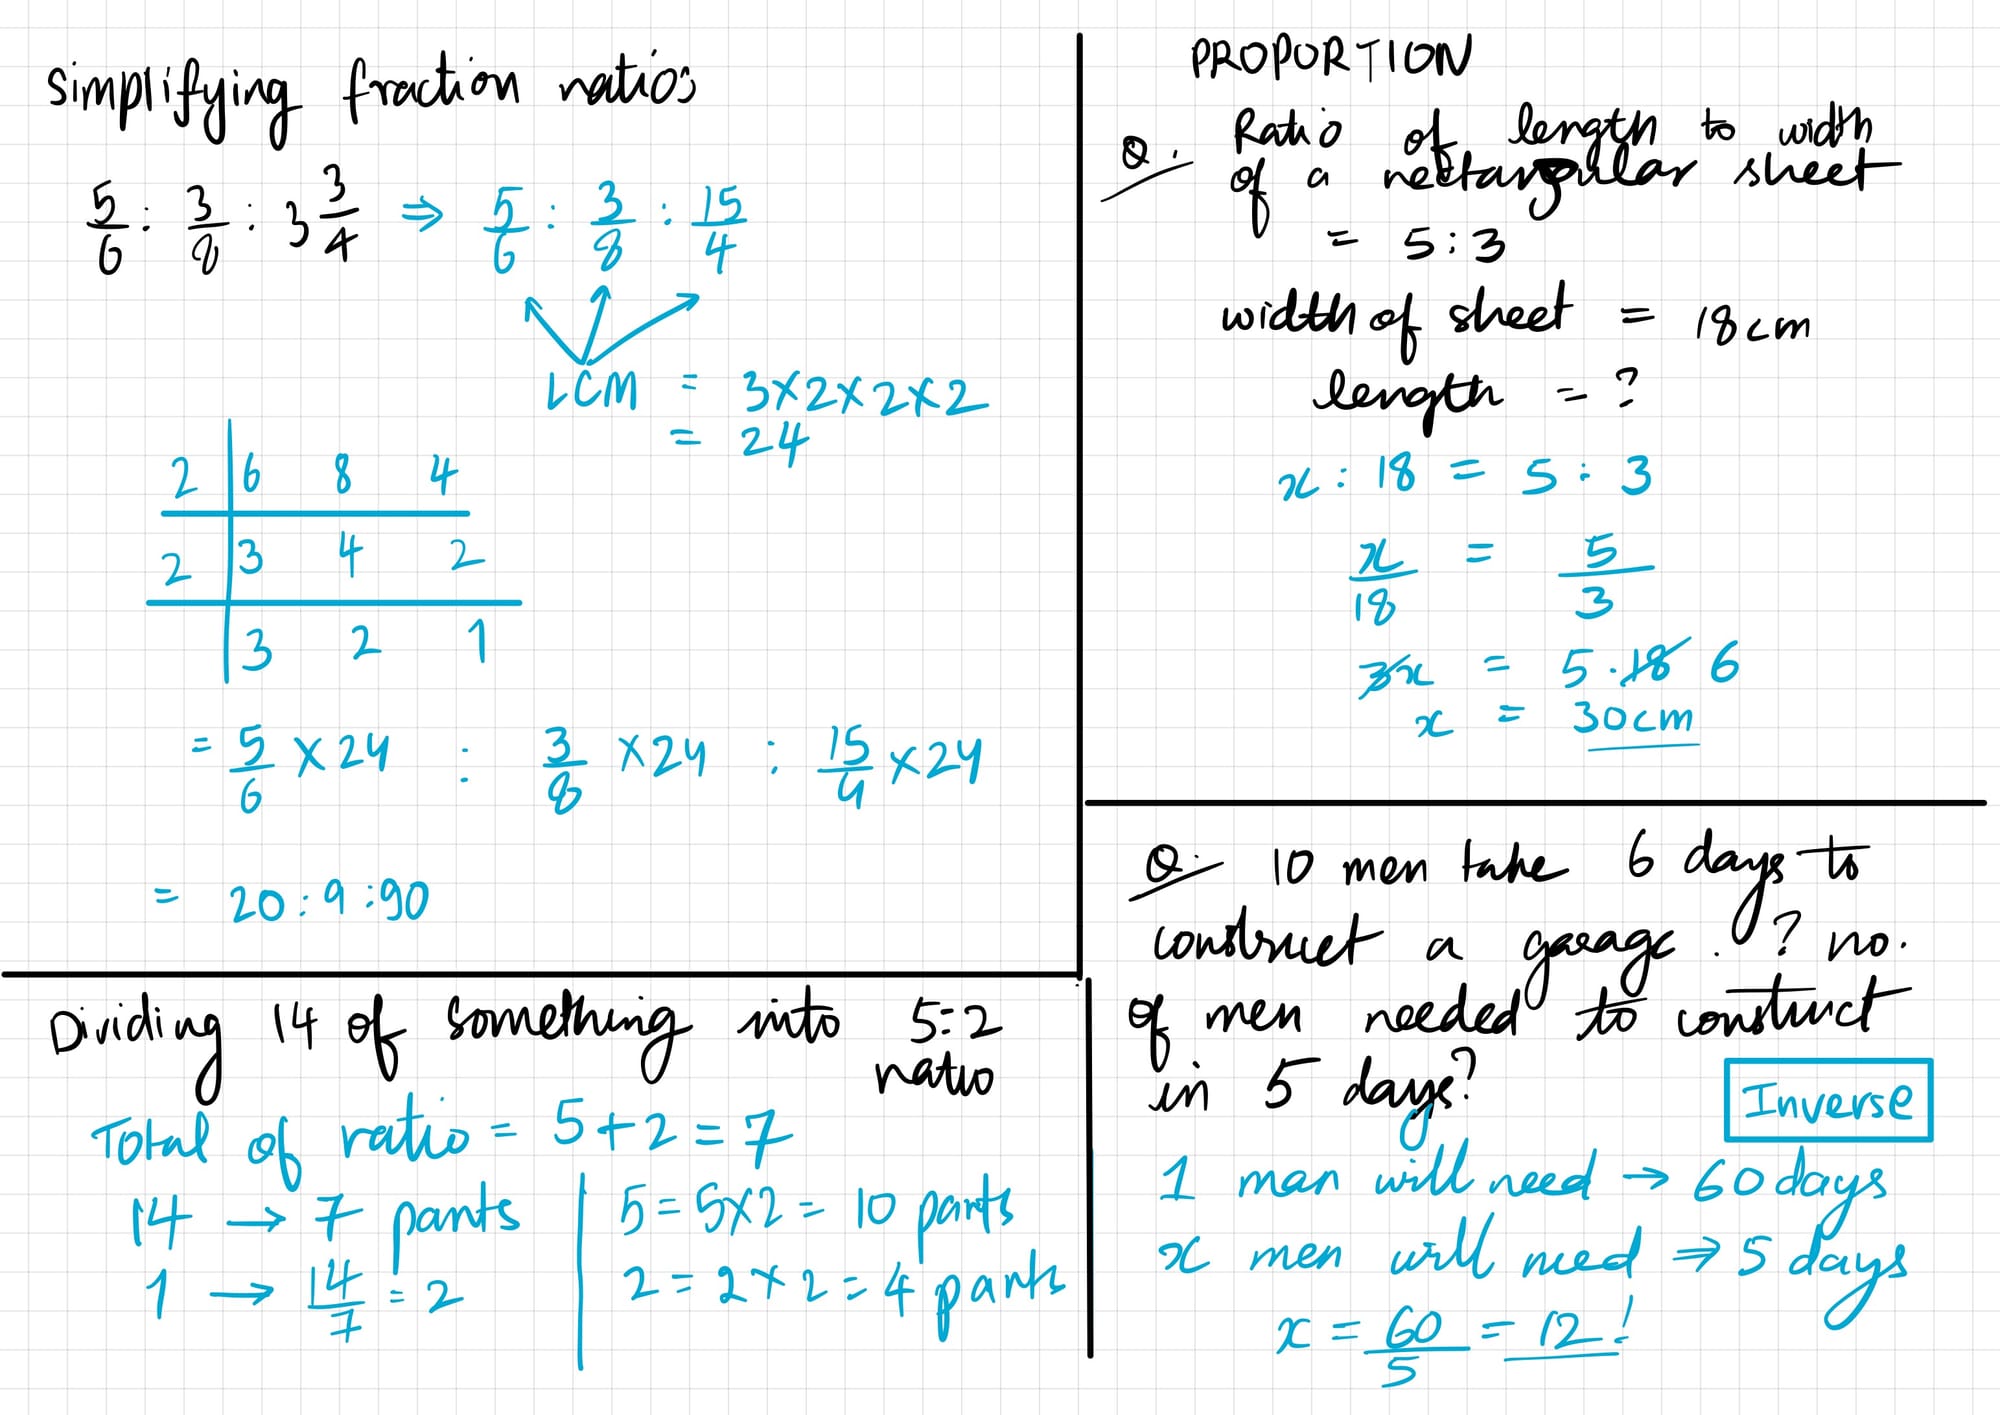 Simplifying fraction ratios
5/6 : 3/8 : 3 3/4 ⇒ 5/6 : 3/8 : 15/4
LCM = 3×2×2×2
= 24
2 | 6 8 4
2 | 3 4 2
3 2 1
= 5/6 × 24 : 3/8 × 24 : 15/4 × 24
= 20 : 9 : 90
Dividing 14 of something into 5:2
ratio
Total of ratio = 5+2 = 7
14 → 7 parts
1 → 14/7 = 2
5 = 5×2 = 10 parts
2 = 2×2 = 4 parts
PROPORTION
Q. Ratio of length to width
of a rectangular sheet
= 5:3
width of sheet = 18cm
length = ?
x : 18 = 5 : 3
x/18 = 5/3
3x = 5·18 6
x = 30cm
Q. 10 men take 6 days to
construct a garage. ? no.
of men needed to construct
in 5 days?
Inverse
1 man will need → 60 days
x men will need ⇒ 5 days
x = 60/5 = 12!